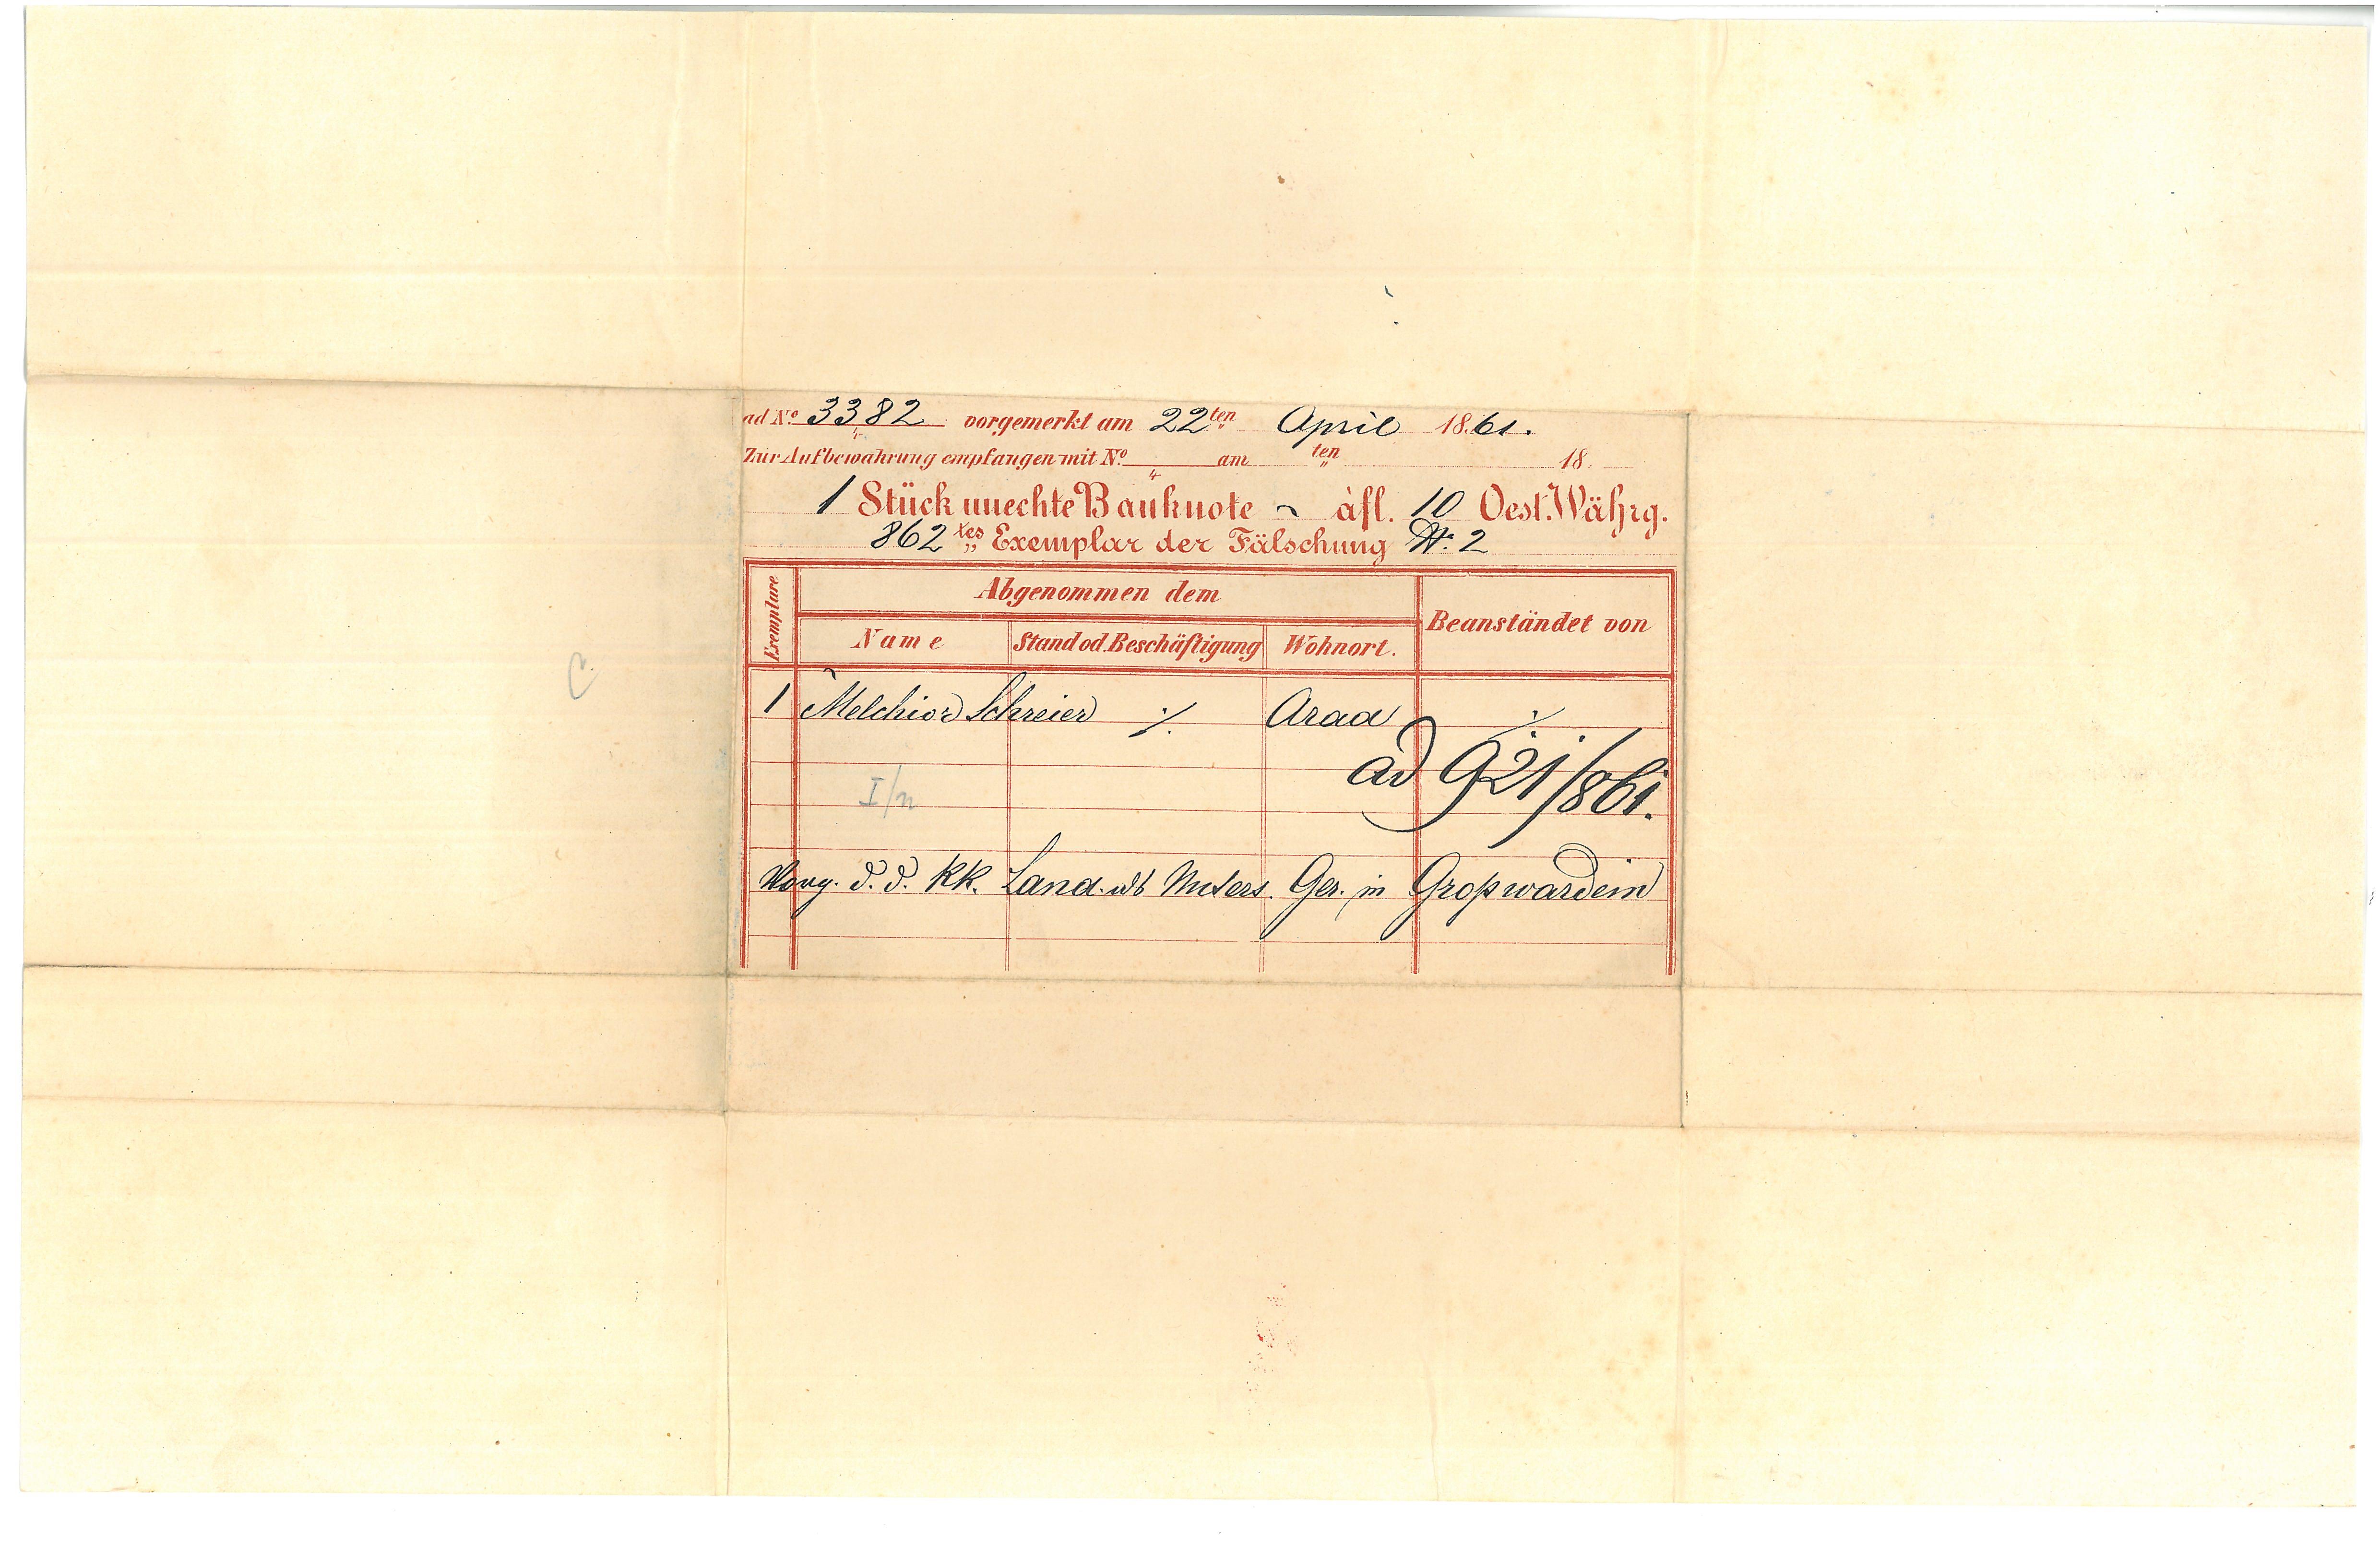 ad No. 3382 vorgemerkt am 22ten April 1861.
Zur Aufbewahrung empfangen mit No. am ten 18
1 Stück unechte Banknote ~ à fl. 10 Oest. Währg.
862 tes Exemplar der Fälschung 2
Exemplare
Abgenommen dem
Beanständet von
Name Stand od. Beschäftigung Wohnort.
1 Melchior Schreier ·/. Arad ·/.
ad 921/861.
I/n
Vorg. d. d. KK. Land. als Unters. Ger. in Großwardein
C